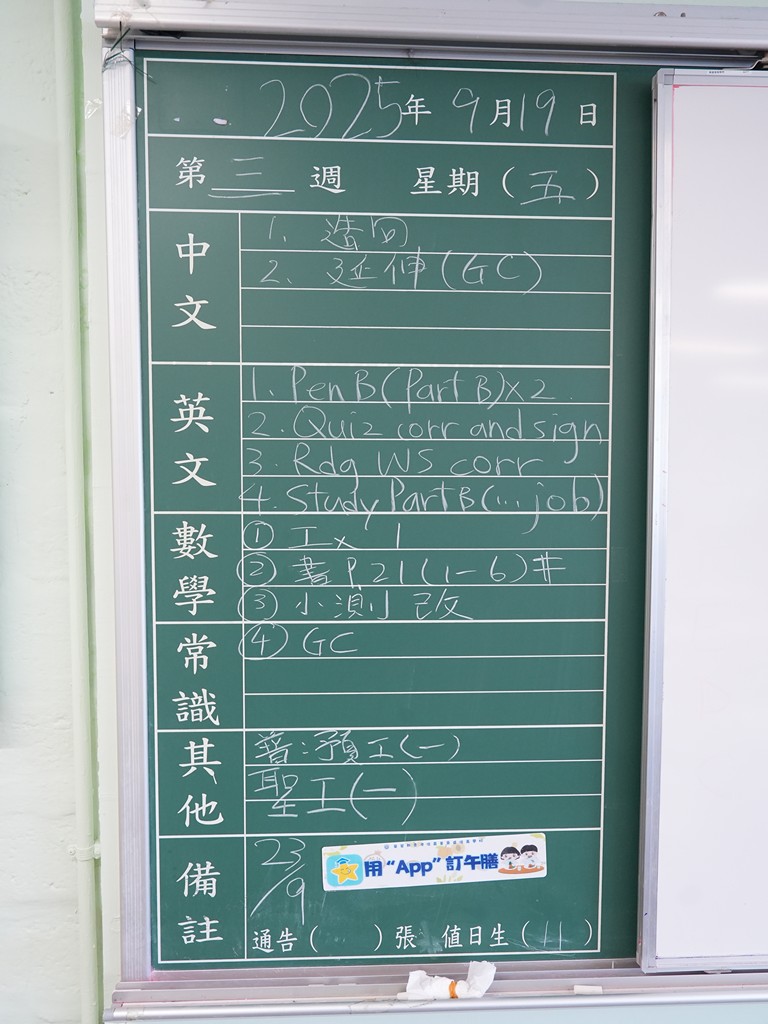 2025年 9月19日
第 三 週 星期（五）
中文
1. 造句
2. 延伸(GC)
英文
1. Pen B(Part B)x2
2. Quiz corr and sign
3. Rdg WS corr
4. Study Part B(...job)
數學
① 工x 1
② 書 P.21(1-6)#
③ 小測改
常識
④ GC
其他
普:預工(一)
聖工(一)
備註
23/9
用“App”訂午膳
通告( )張 值日生(11)